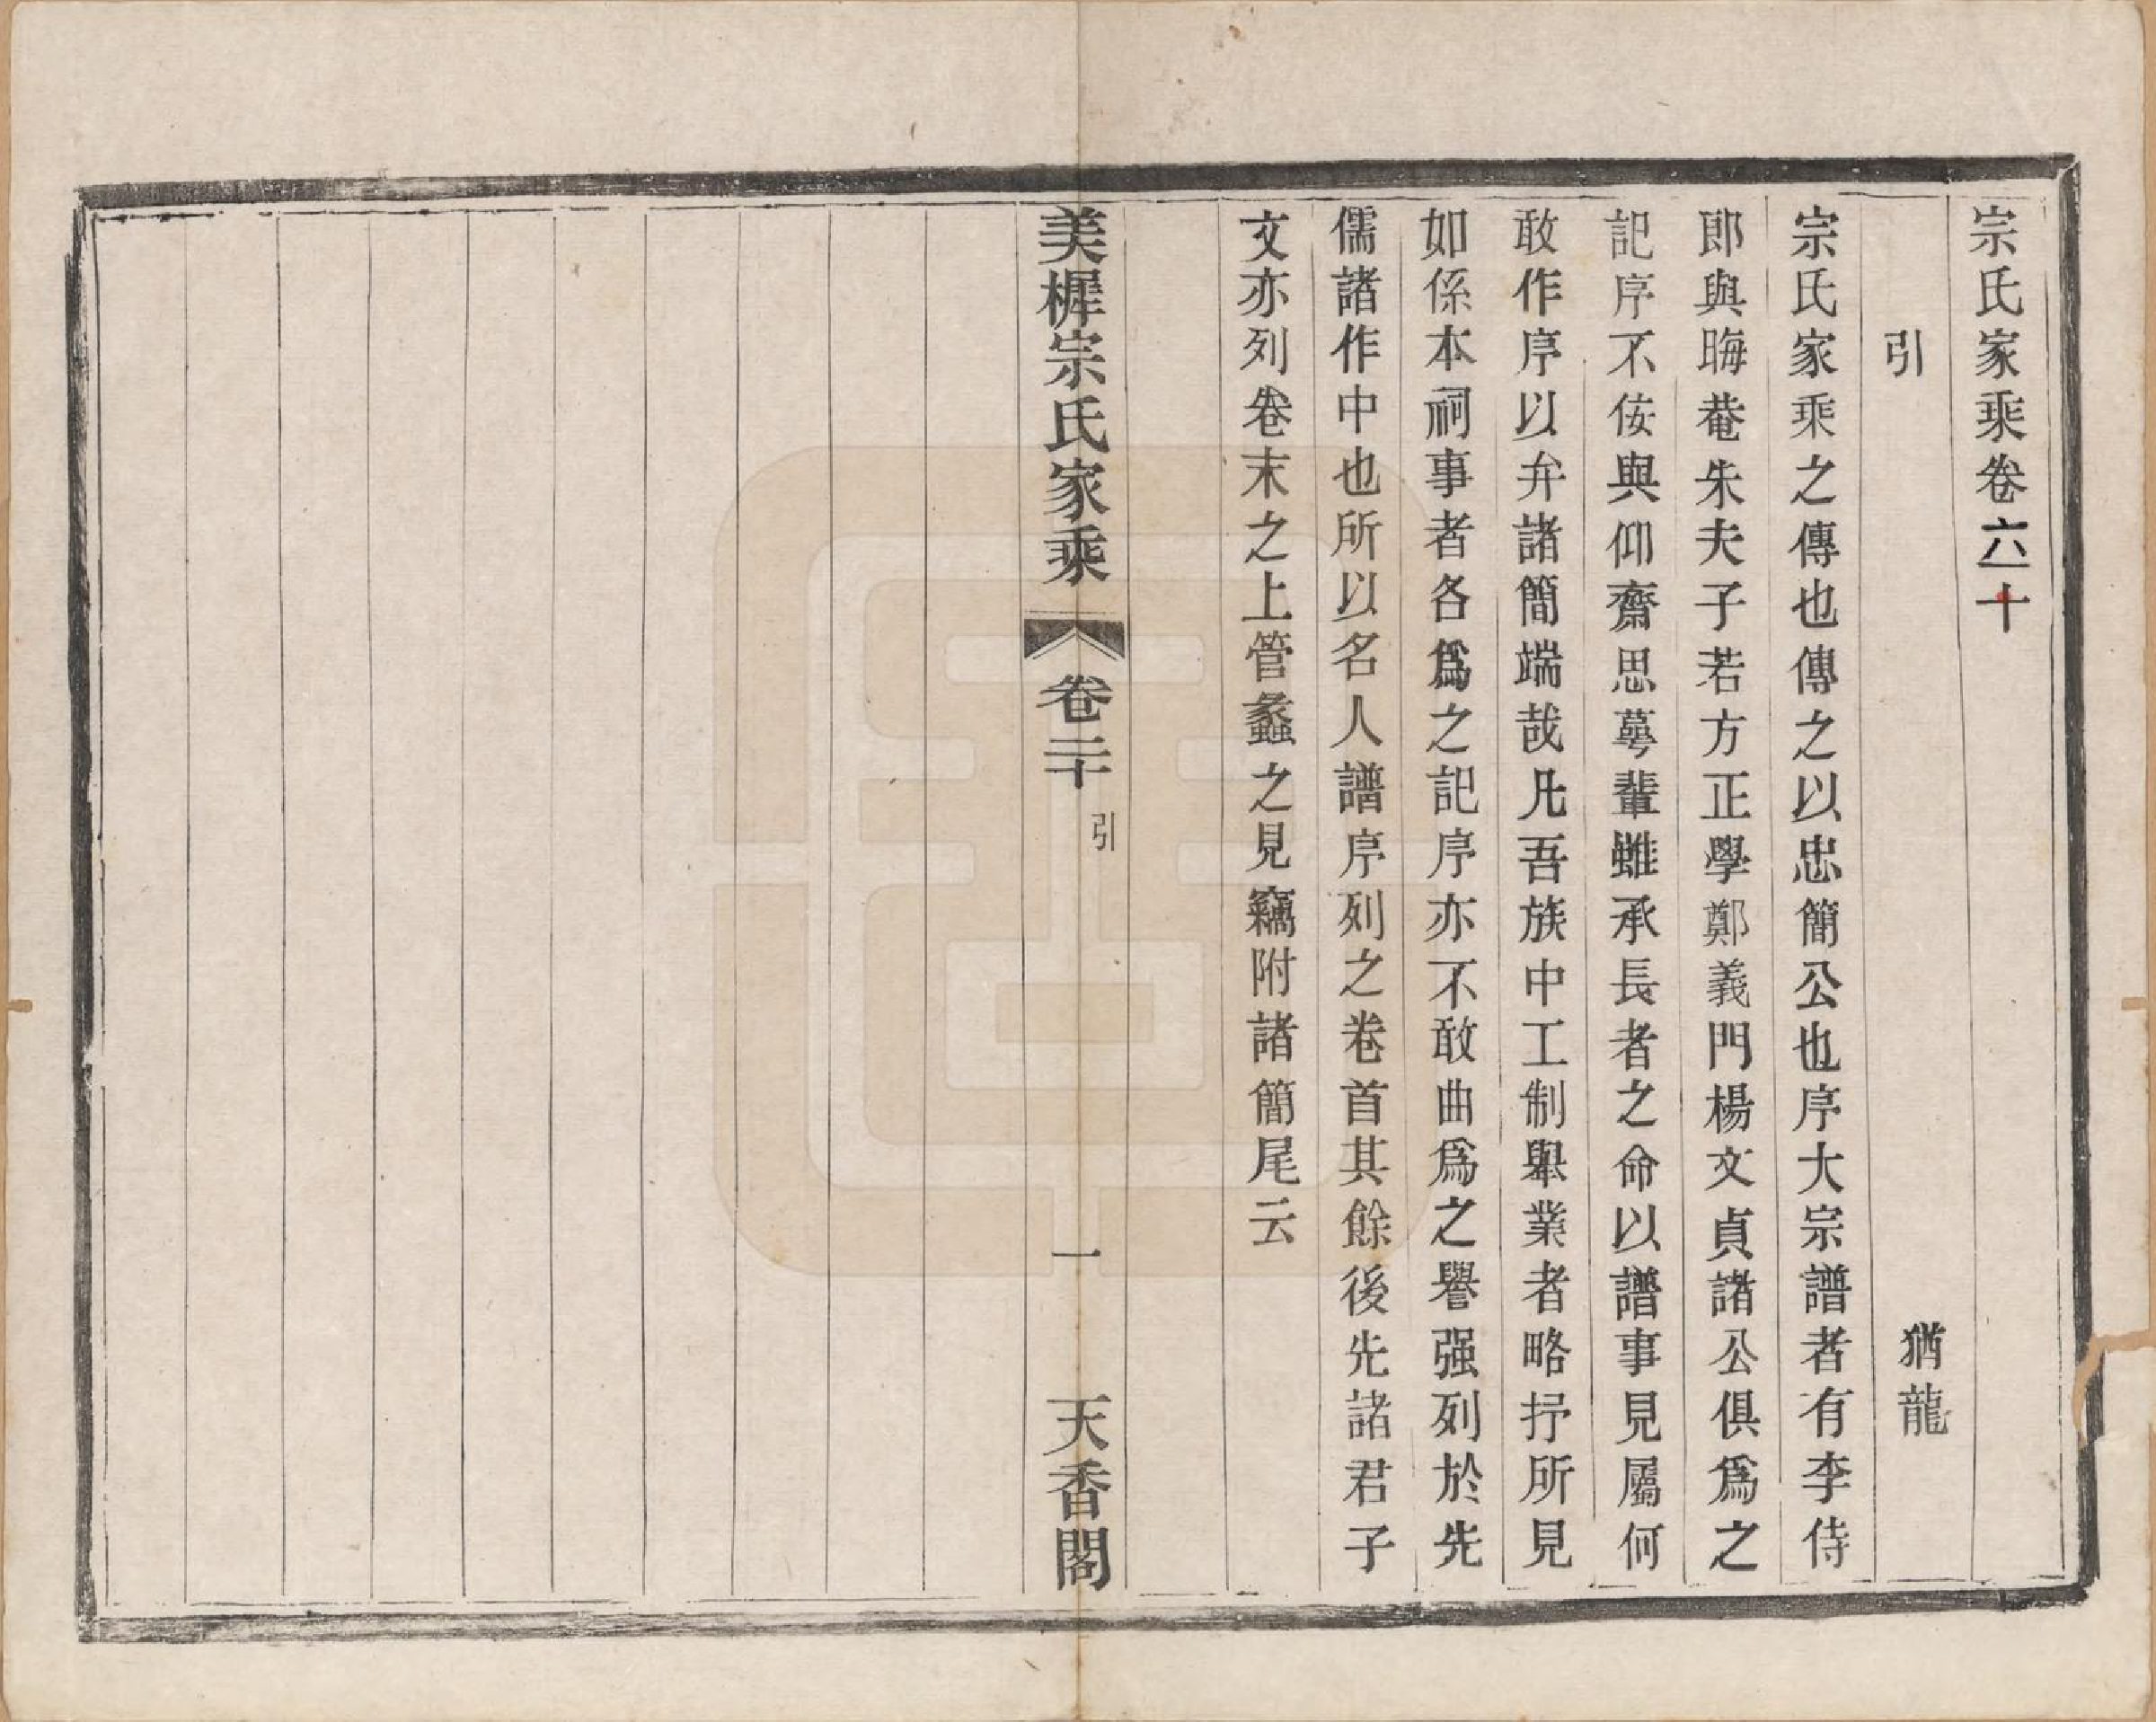 宗氏家乘卷六十
引
猶龍
宗氏家乘之傳也傳之以忠簡公也序大宗譜者有李侍
郎與晦菴朱夫子若方正學鄭義門楊文貞諸公俱爲之
記序不佞與仰齋思萼輩雖承長者之命以譜事見屬何
敢作序以弁諸簡端哉凡吾族中工制舉業者略抒所見
如係本祠事者各爲之記序亦不敢曲爲之譽强列於先
儒諸作中也所以名人譜序列之卷首其餘後先諸君子
文亦列卷末之上管蠡之見竊附諸簡尾云
美樨宗氏家乘
卷二十
引
一
天香閣